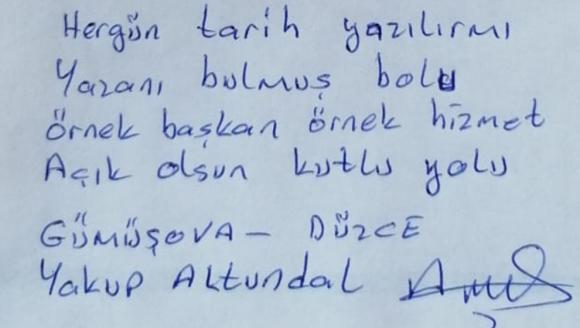 Hergün tarih yazılırmı
Yazanı bulmuş bolu
örnek başkan örnek hizmet
Açık olsun kutlu yolu
GÜMÜŞOVA - DÜZCE
Yakup Altundal